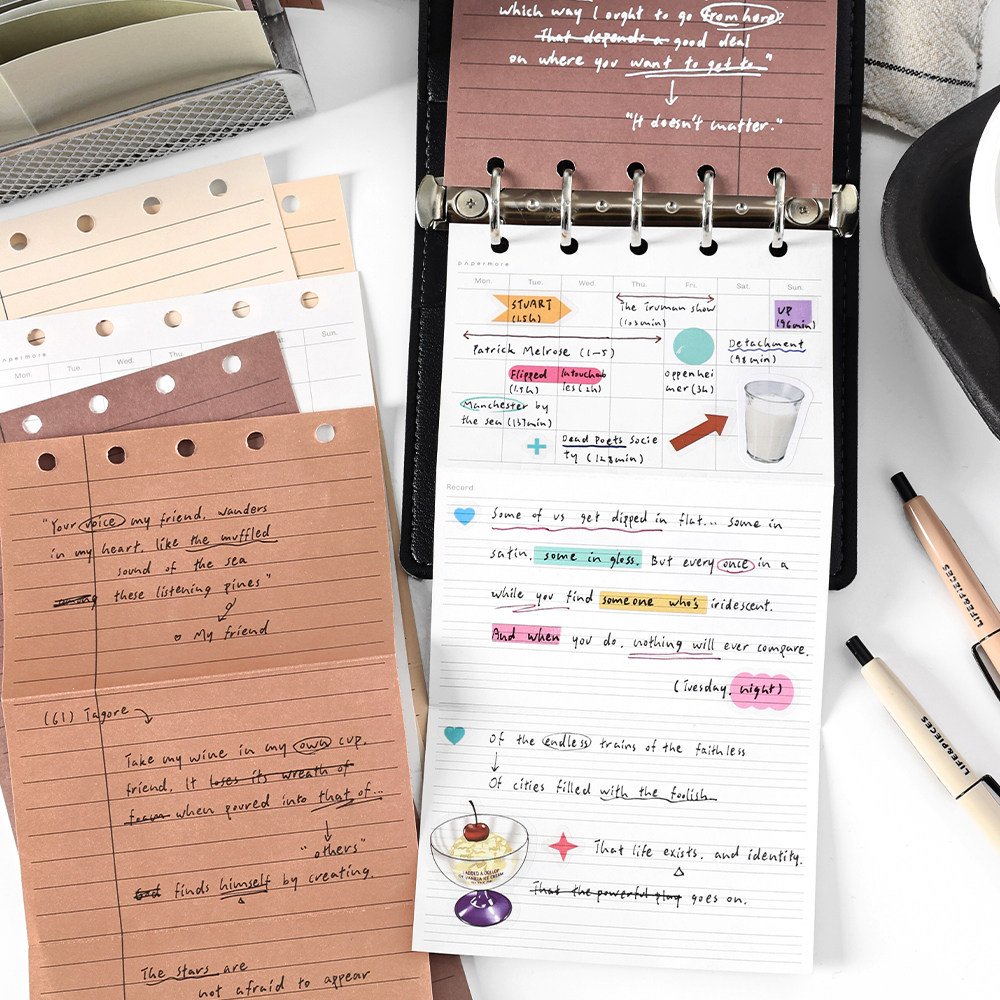 which way I ought to go from here?
That depends a good deal
on where you want to get to."
"It doesn't matter."
papermore
Mon. Tue. Wed. Thu. Fri. Sat. Sun.
STUART
(1.5h)
The Truman show
(103min)
UP
(96min)
Patrick Melrose (1-5)
Detachment
(98min)
Flipped
(1.5h)
Intouchab
les (2h)
oppenhei
mer (3h)
Manchester by
the sea (137min)
Dead Poets Socie
ty (128min)
Record
Some of us get dipped in flat... some in
satin, some in gloss. But every once in a
while you find someone who's iridescent.
And when you do, nothing will ever compare.
(Tuesday, night)
Of the endless trains of the faithless
Of cities filled with the foolish
ADDED A DOLLOP
OF VANILLA ICE CREAM
That life exists, and identity.
That the powerful play goes on.
papermore
Wed. Thu. Sun.
"Your voice my friend, wanders
in my heart, like the muffled
sound of the sea
among these listening pines"
My friend
(61) Tagore
Take my wine in my own cup,
friend. It loses its wreath of
foam when poured into that of...
"others"
God finds himself by creating
The stars are
not afraid to appear
LIFE&PIECES
LIFE&PIECES